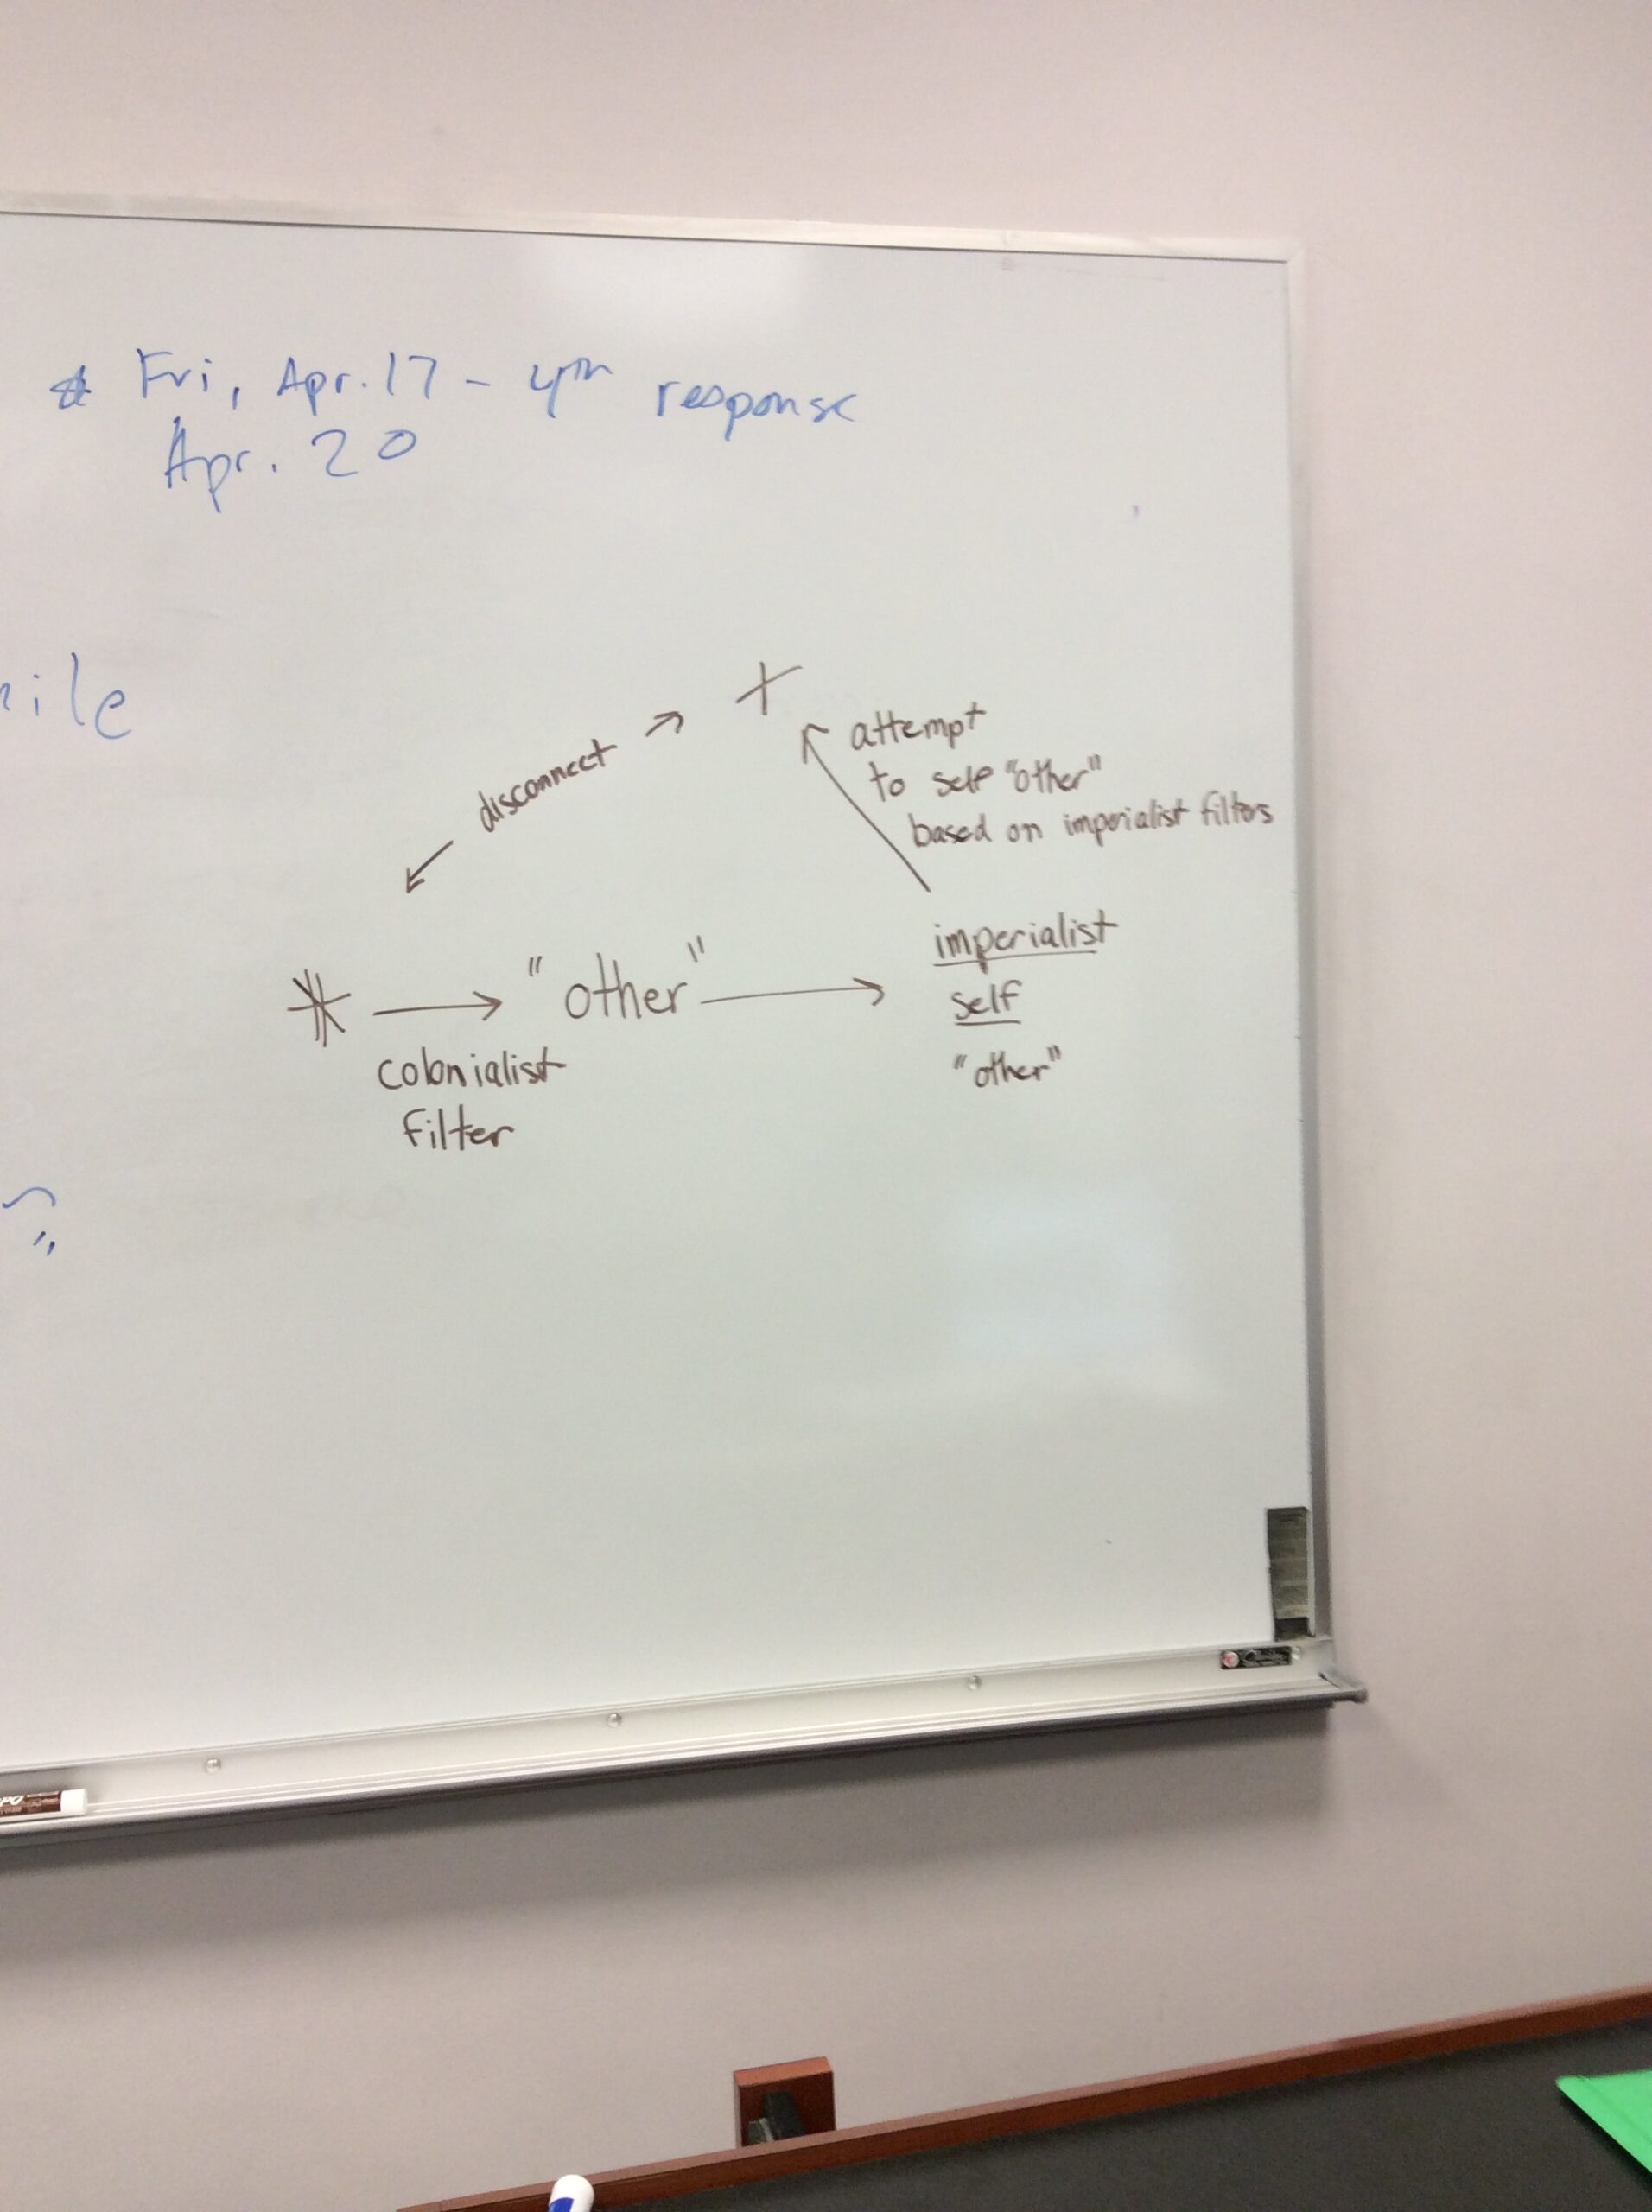 Fri, Apr. 17 - 4th response
Apr. 20
disconnect
+
attempt
to self "other"
based on imperialist filters
* → "other" →
colonialist
filter
imperialist
self
"other"